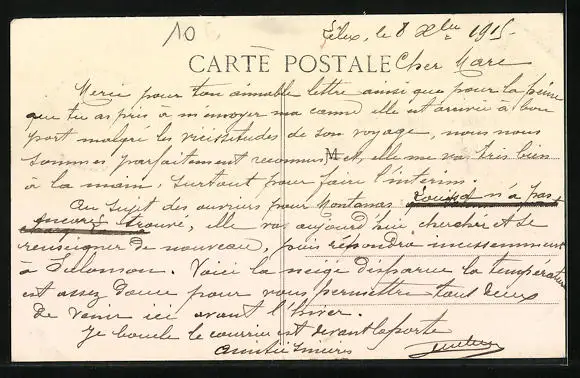 10
le 8 Xbre 1915
CARTE POSTALE
Cher Marc
Merci pour ton aimable lettre ainsi que pour la peine
que tu as pris à m'envoyer ma canne elle est arrivée à bon
port malgré les vicicitudes de son voyage, nous nous
sommes parfaitement reconnus et, elle me va très bien
à la main, surtout pour faire l'intérim.
Au sujet des ouvriers pour Montanas Louisa n'a pas
encore trouvé, elle va aujourd'hui chercher et se
renseigner de nouveau, puis répondra incessamment
à Salomon. Voici la neige disparue la température
est assez douce pour vous permettre tout deux
de venir ici avant l'hiver.
Je boucle le courrier est devant la porte
Amitié sincères